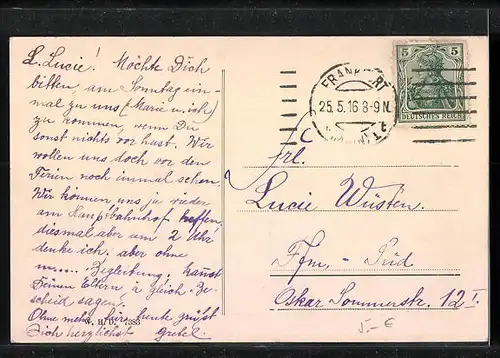 L. Lucie! Möchte Dich
bitten, am Sonntag ein-
mal zu uns (Marie u. ich)
zu kommen, wenn Du
sonst nichts vor hast. Wir
wollen uns doch vor den
Ferien noch einmal sehen.
Wir können uns ja wieder
am Hauptbahnhof treffen,
diesmal aber um 2 Uhr
denke ich, aber ohne
Begleitung. Kannst
Deinen Eltern ja gleich Be-
scheid sagen.
Ohne mehr für heute grüßt
Dich herzlichst Gretel.
FRANKFURT
25.5.16 8-9 N.
5 5
DEUTSCHES REICH
Frl.
Lucie Wüsten.
Ffm. - Süd
Oskar Sommerstr. 12 I.
5.- €